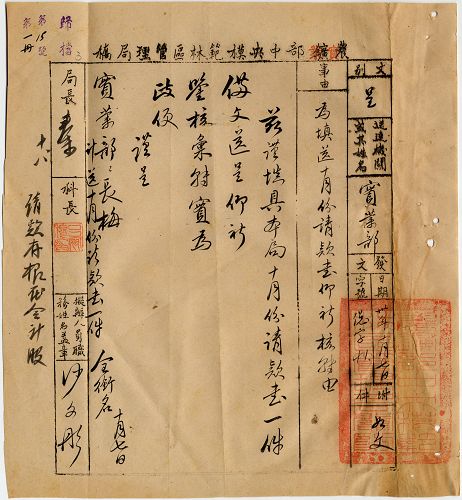 農礦部中央模範林區管理局稿
文別
呈
送達機關
或其姓名
實業部
發文
日期
字號
附件
如文
事由
為填送十月份請款書仰祈核發由
茲謹填具本局十月份請款書一件
備文送呈仰祈
鑒核彙發實為
政便
謹呈
實業部部長
計送十月份請款書一件
全銜名
十月七日
局長
科長
擬辦人員職務姓名蓋章
沙文彤
十、八
請款存根及會計股
歸檔
第15號
第一冊